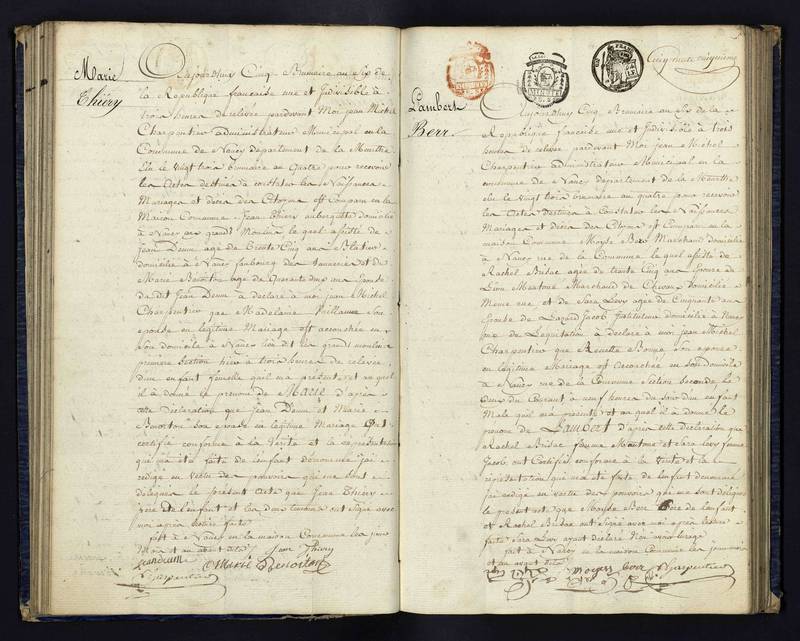 Marie
Thiery
Aujourdhuy Cinq Brumaire an Six de
la Republique francaise une et Indivisible à
trois heures de relevée pardevant Moi jean Michel
Charpentier administrateur Municipal en la
Commune de Nancy departement de la Meurthe
Elu le Vingt trois brumaire an quatre pour recevoir
les Actes destinés à constater les Naissances
Mariages et deces des Citoyens est Comparu en la
Maison Commune Jean Thiery aubergiste domicilié
à Nancy aux grands Moulins le quel assisté de
Jean Denu agé de Trente Cinq ans
domicilié à Nancy faubourg des et de
Marie Benoiton agé de Quarante ans Epouse
dudit Jean Denu à declaré à moi jean Michel
Charpentier que Madelaine Villaume Son
epouse en legitime Mariage est accouchée en
Son domicile à Nancy lieu dit les grands moulins
premiere Section hier à trois heures de relevée
d'un enfant femelle qu'il m'a présenté et au quel
il à donné le prenom de Marie d'après
cette declaration que Jean Denu et Marie
Benoiton Son epouse en legitime Mariage Ont
certifié conforme à la Verité et la representation
qui m'a été faite de l'enfant denommée j'ai
redigé en vertu des pouvoirs qui me sont
delegués le présent Acte que Jean Thiery
père de l'enfant et les deux temoins ont signé avec
moi après lecture faite
fait à Nancy en la maison Commune les jour
Mois et an avant dits Jean Thiery
Marie Benoiton
Charpentier
Cinq cente onzieme
Lambert
Berr
Aujourdhuy Cinq Brumaire an Six de la
Republique francaise une et Indivisible à trois
heures de relevée pardevant Moi jean Michel
Charpentier administrateur Municipal en la
commune de Nancy departement de la Meurthe
elu le vingt trois brumaire an quatre pour recevoir
les Actes destinés à Constater les Naissances
Mariages et deces des Citoyens est Comparu en la
maison Commune Moyse Berr Marchand domicilié
à Nancy rue de la Commune le quel assisté de
Rachel Brisac agée de trente Cinq ans Epouse de
Léon Marchand de Chevaux domicilié
Meme rue et de Sara Levy agée de Cinquante ans
Epouse de Lazard Jacob Instituteur domicilié à Nancy
rue de Lequitation à Declaré à moi jean Michel
Charpentier que Bonne Son epouse
en legitime Mariage est Accouchée en son domicile
à Nancy rue de la Commune Section seconde, le
Deux du Courant à neuf heures du Soir d'un enfant
Male qu'il m'a présenté et au quel il à donné le
prenom de Lambert d'après cette declaration que
Rachel Brisac femme et Sara Levy femme
Jacob ont Certifié conforme à la Verité et la
representation qui m'a été faite de l'enfant denommé
j'ai redigé en vertu des pouvoirs qui me sont delegués
le present acte que Moyse Berr Père de l'enfant
et Rachel Brisac ont Signé avec moi après lecture
faite Sara Levy ayant declaré
fait à Nancy en la maison Commune les jour mois
et an avant dits
Berr Charpentier